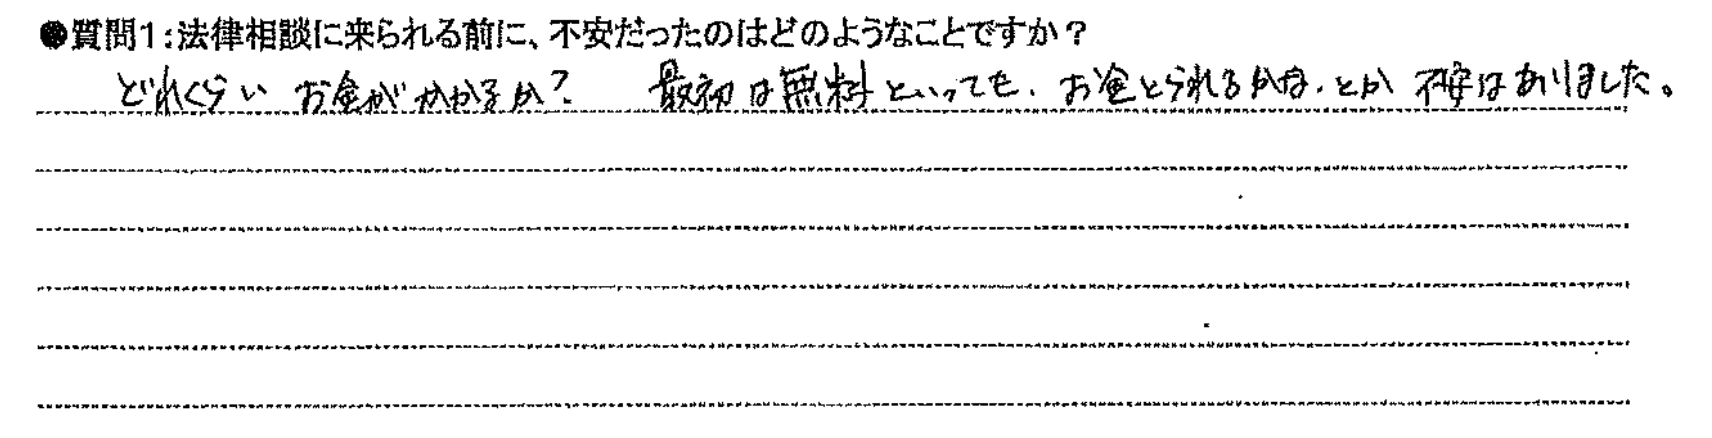 ●質問1:法律相談に来られる前に、不安だったのはどのようなことですか？
どれくらい お金がかかるか？ 最初は無料といっても、お金とられるかな、とか 不安はありました。